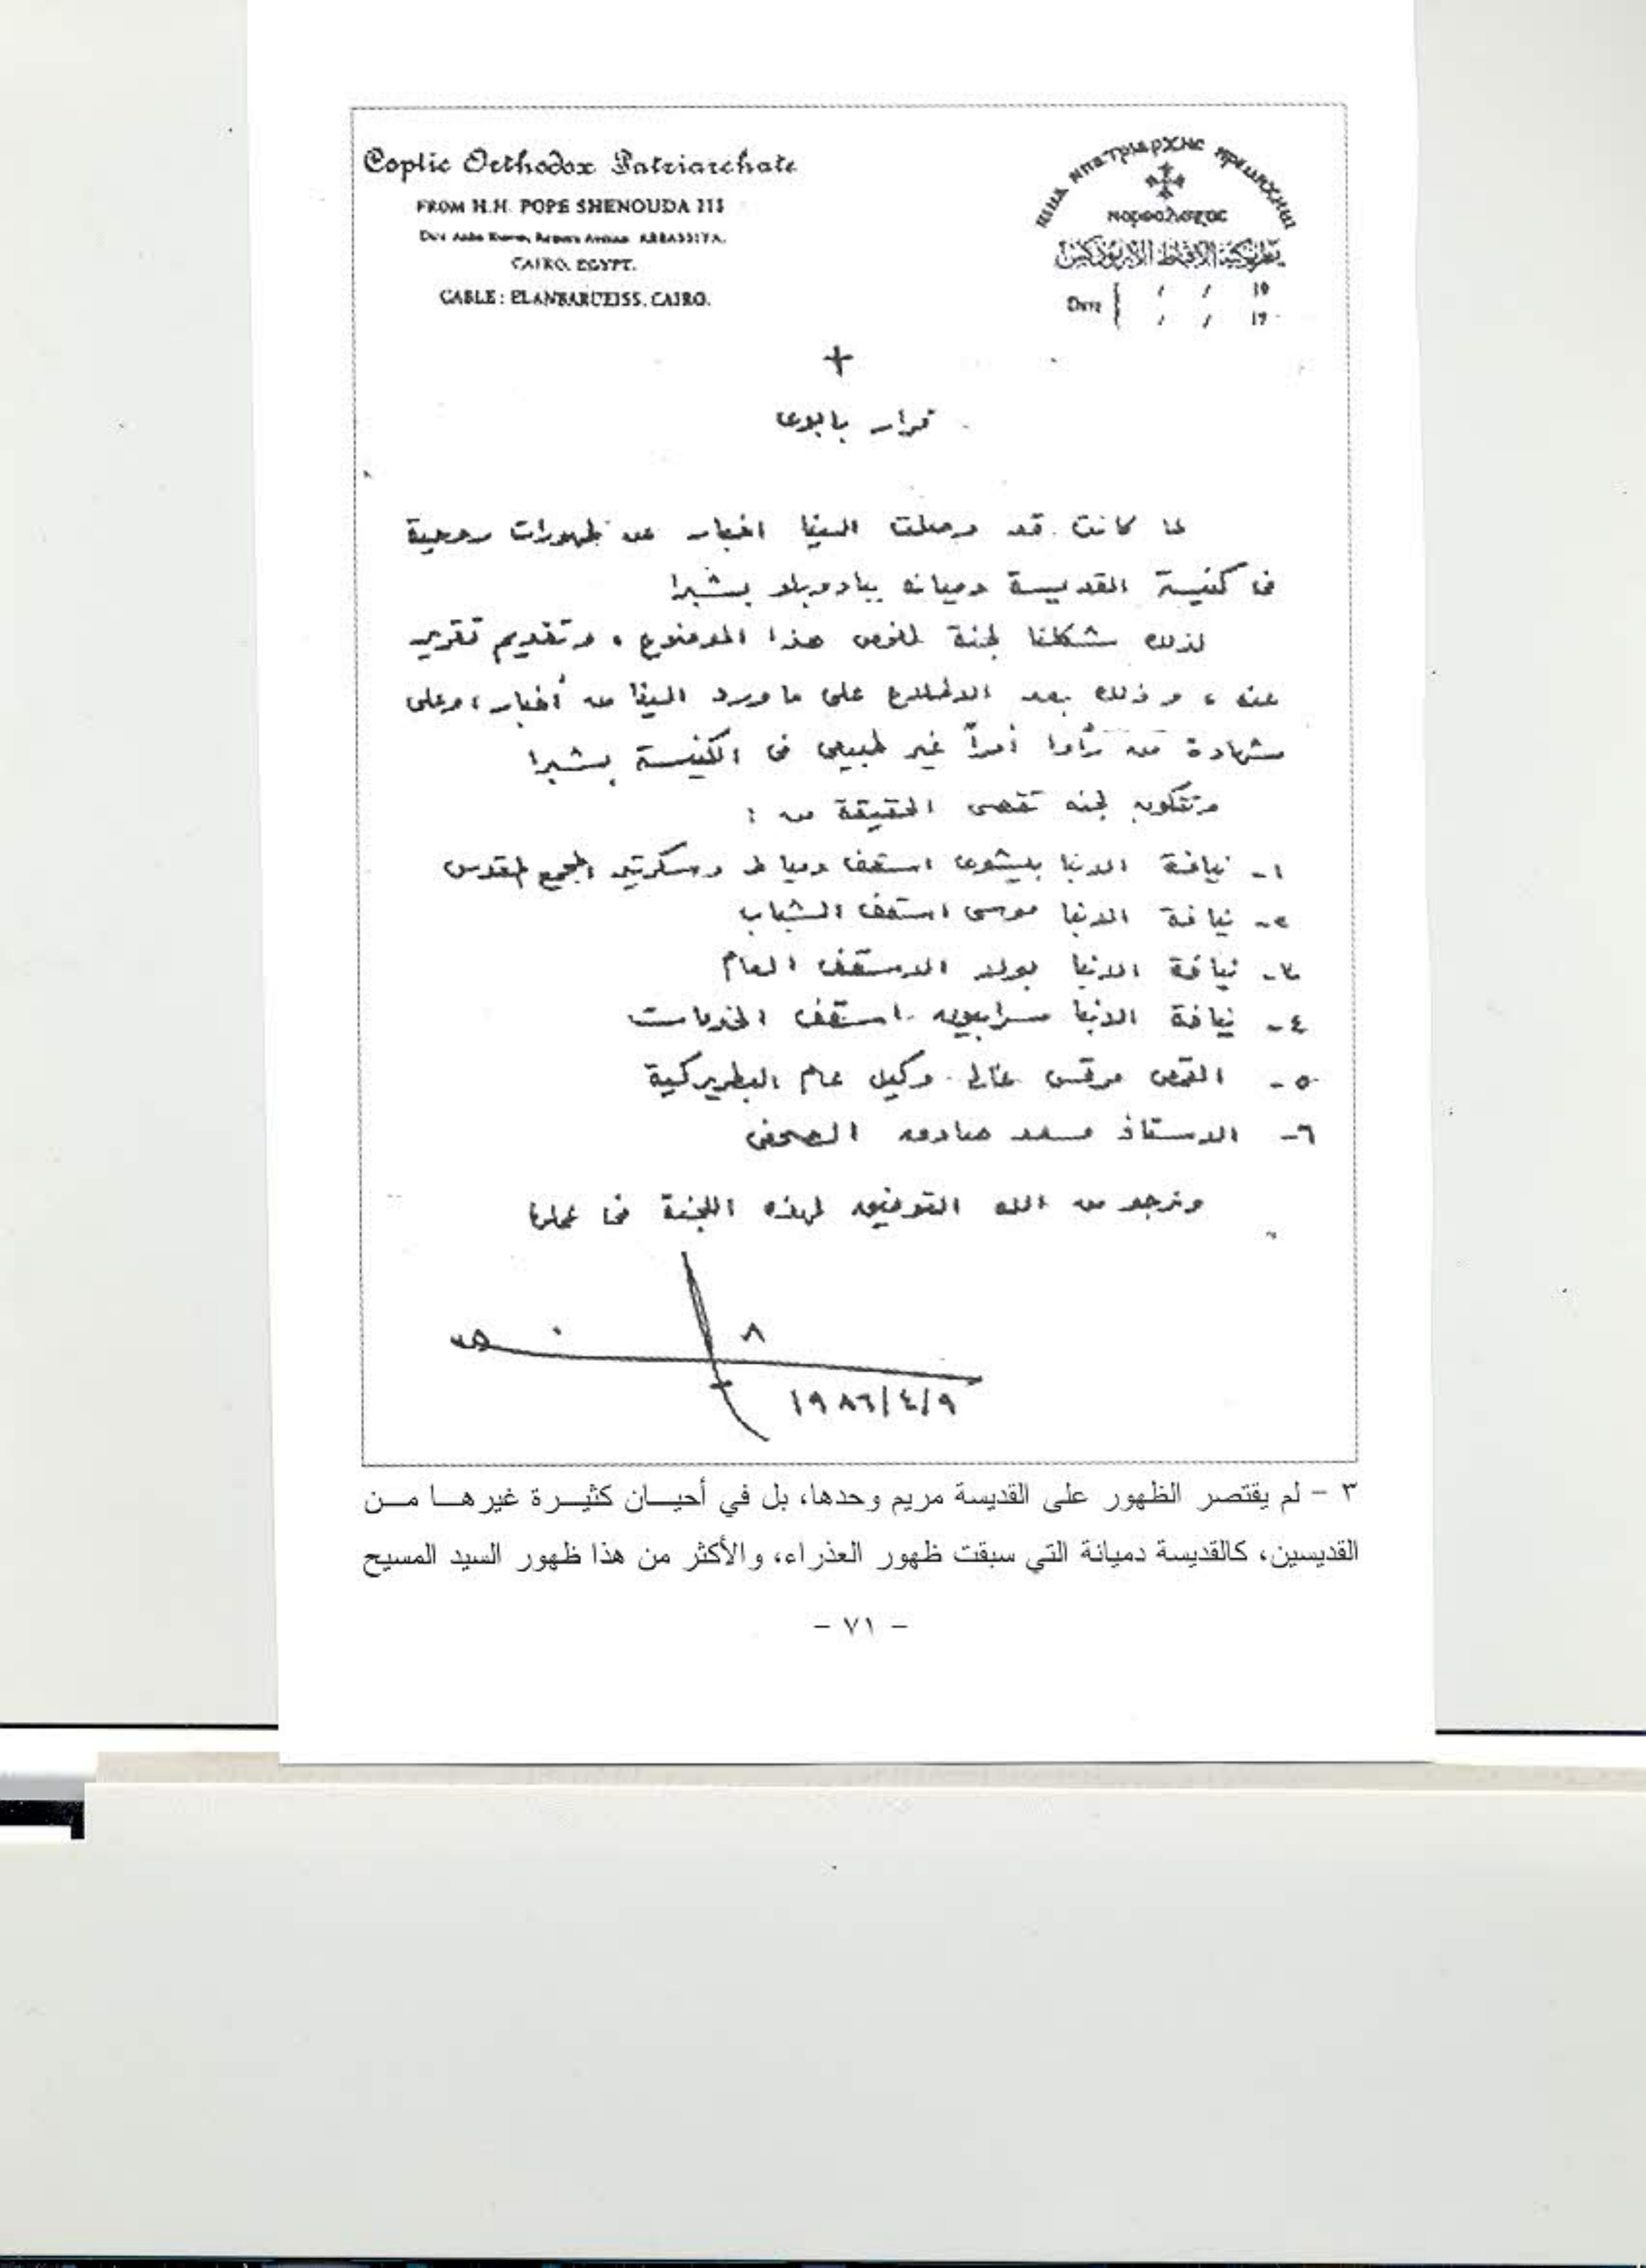 Coptic Orthodox Patriarchate
FROM H.H. POPE SHENOUDA III
Deir Anba Rueiss, Ramses Avenue ABBASSIYA.
CAIRO, EGYPT.
CABLE: ELANBARUEISS, CAIRO.
بطريركية الأقباط الأرثوذكس
Date / / 19
/ / 19
+
قرار بابوى
لما كانت قد وصلت الينا اخبار عن ظهورات روحية
فى كنيسة القديسة دميانه ببابادوبلو بشبرا
لذلك شكلنا لجنة لفحص هذا الموضوع ، وتقديم تقرير
عنه ، وذلك بعد الاطلاع على ما ورد الينا من أخبار ، وعلى
شهادة من رأوا أمراً غير طبيعى فى الكنيسة بشبرا
وتتكون لجنه تقصى الحقيقة من :
١- نيافة الانبا بيشوى اسقف دمياط وسكرتير المجمع المقدس
٢- نيافة الانبا موسى اسقف الشباب
٣- نيافة الانبا بولا الاسقف العام
٤- نيافة الانبا سرابيون اسقف الخدمات
٥- القمص مرقس غالى وكيل عام البطريركية
٦- الاستاذ مسعد صادق الصحفى
ونرجو من الله التوفيق لهذه اللجنة فى عملها
١٩٨٦/٤/٩
٣ – لم يقتصر الظهور على القديسة مريم وحدها، بل في أحيـــان كثيـــرة غيرهـــا مـــن
القديسين، كالقديسة دميانة التي سبقت ظهور العذراء، والأكثر من هذا ظهور السيد المسيح
– ٧١ –